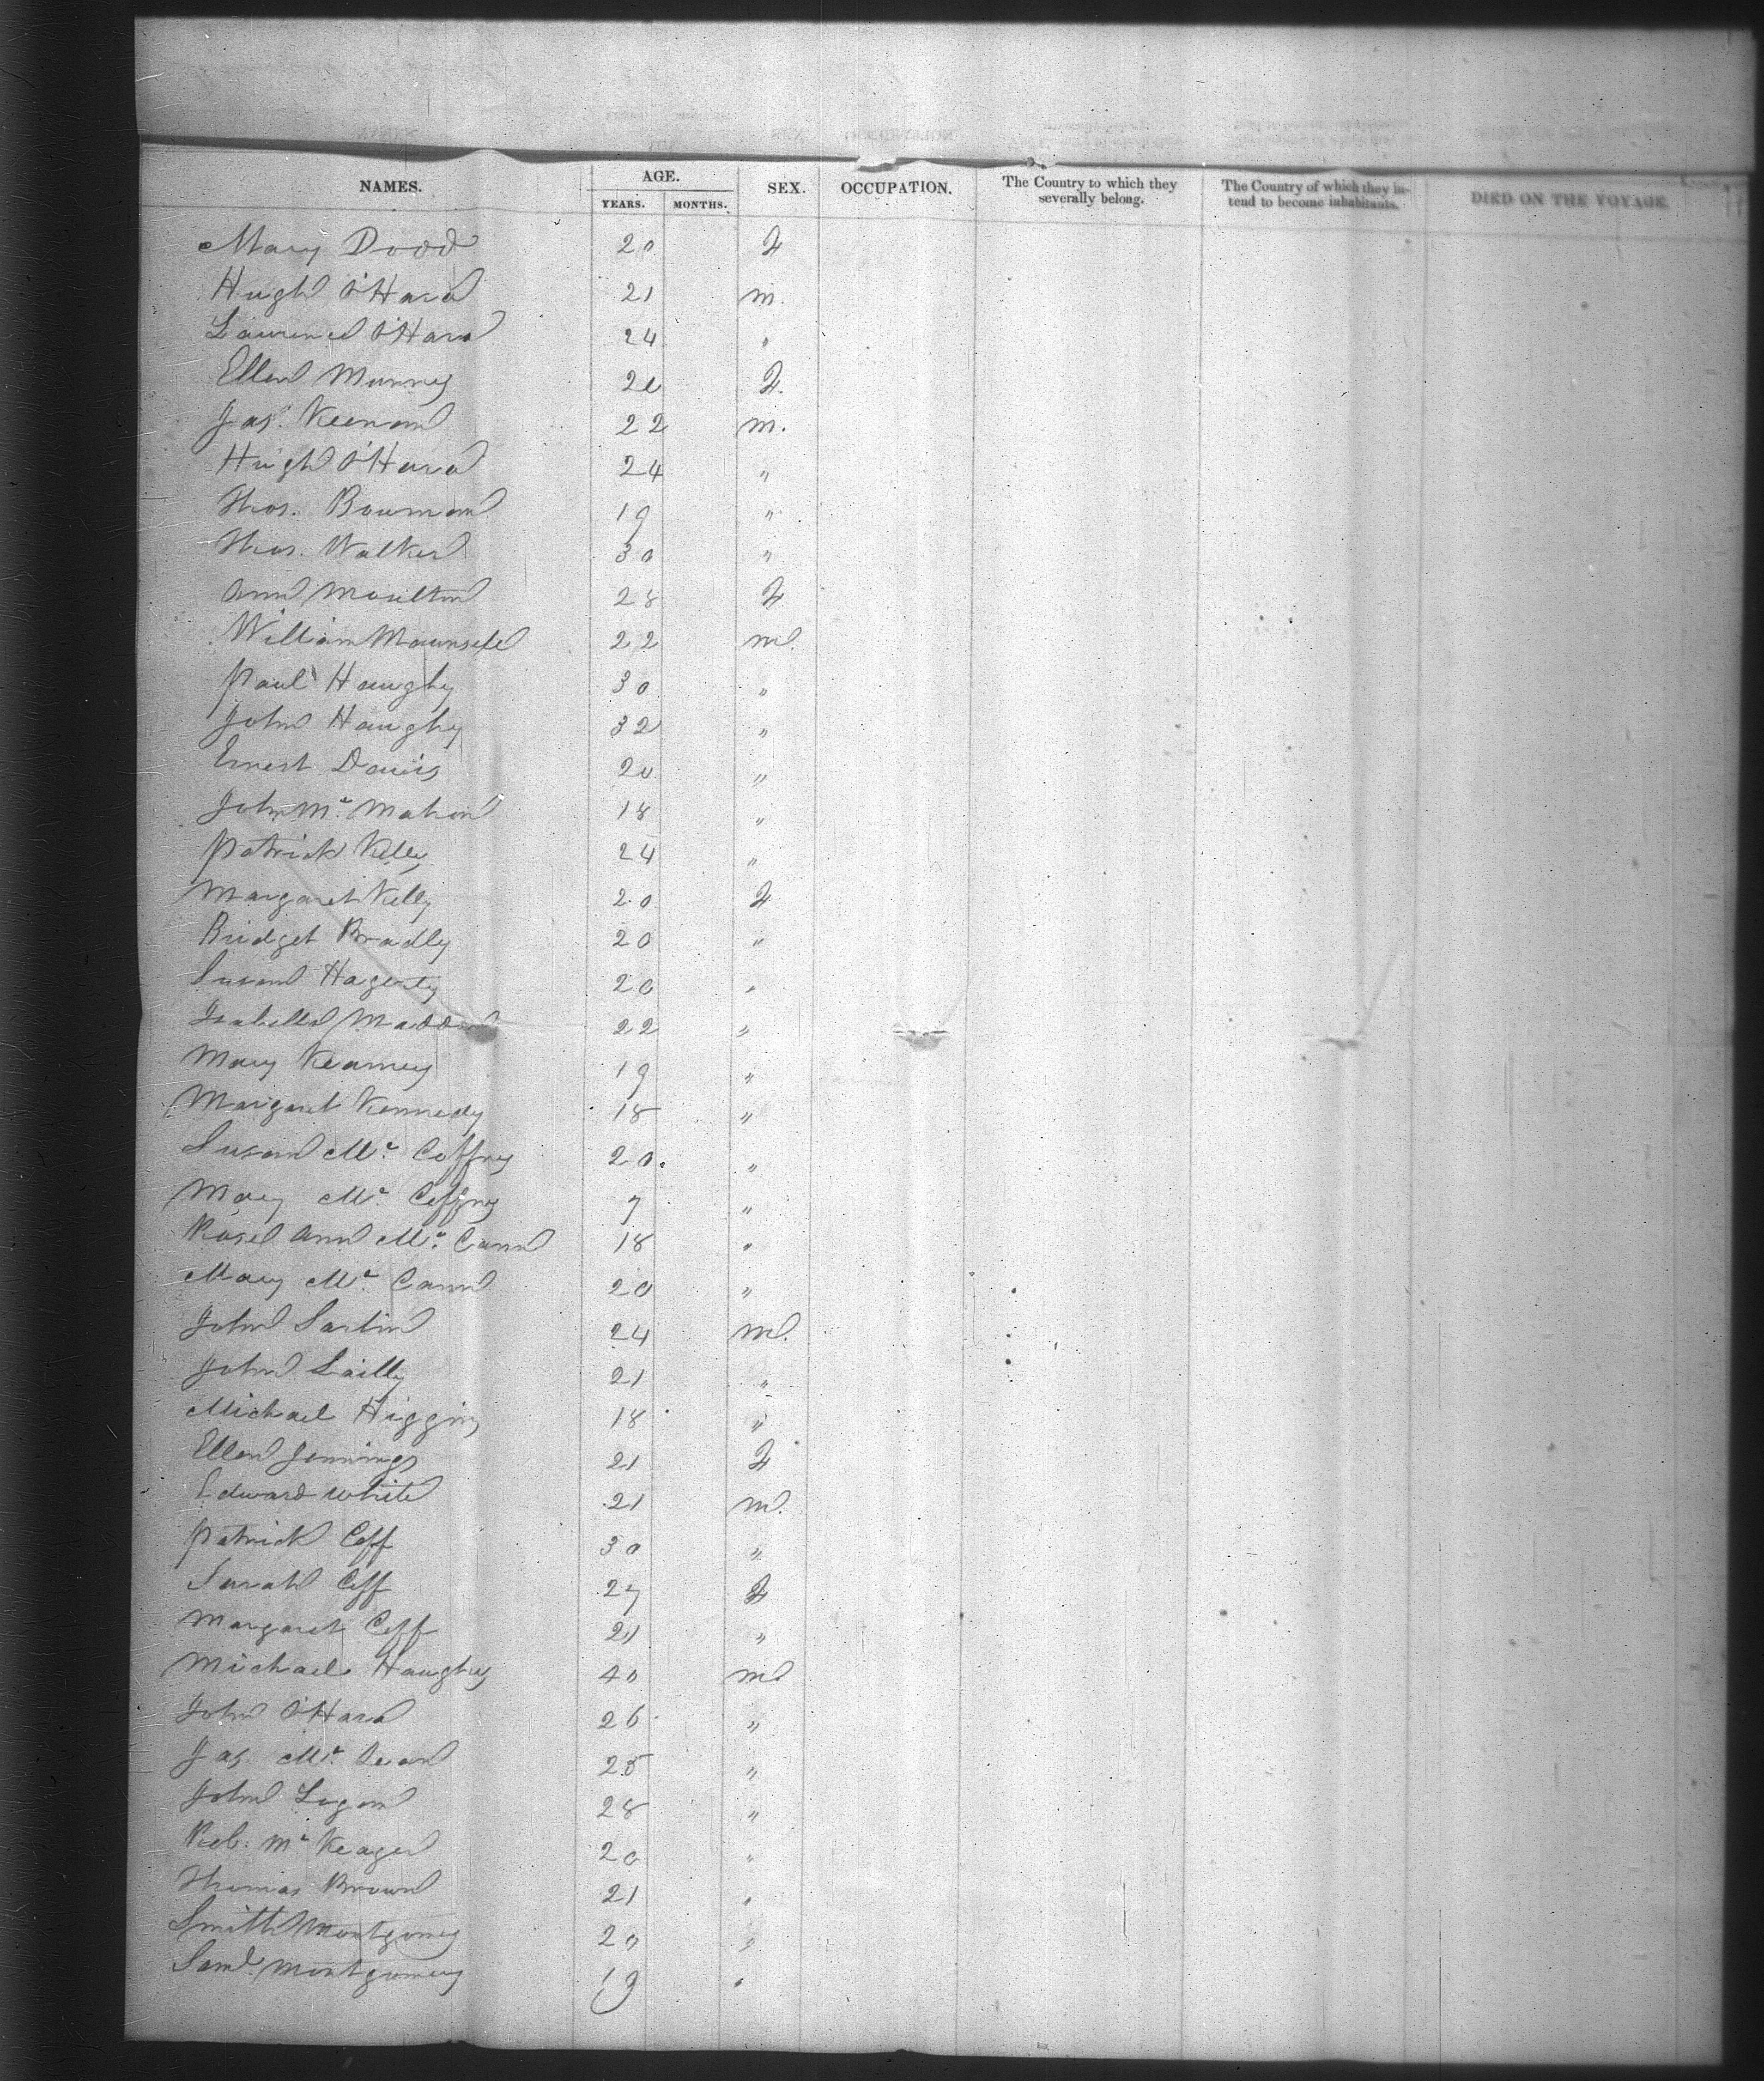 NAMES. AGE. YEARS. MONTHS. SEX. OCCUPATION. The Country to which they severally belong. The Country of which they intend to become inhabitants. DIED ON THE VOYAGE.
Mary Dodd 20 F
Hugh O'Hara 21 M.
Laurence O'Hara 24 "
Ellen Murray 20 F.
Jas. Keenan 22 M.
Hugh O'Hara 24 "
Thos. Bowman 19 "
Thos. Walker 30 "
Ann Moulton 28 F
William Maunsell 22 M.
Paul Haughy 30 "
John Haughy 32 "
Ernest Davis 20 "
John Mc Mahon 18 "
Patrick Kelly 24 "
Margaret Kelly 20 F
Bridget Bradly 20 "
Susan Hagerty 20 "
Isabella Madden 22 "
Mary Kearney 19 "
Margaret Kennedy 18 "
Susan Mc Caffrey 20 "
Mary Mc Caffrey 7 "
Rose Ann Mc Cann 18 "
Mary Mc Cann 20 "
John Sartin 24 M.
John Lailly 21 "
Michael Higgins 18 "
Ellen Jennings 21 F
Edward White 21 M.
Patrick Ceff 30 "
Sarah Ceff 27 F
Margaret Ceff 21 "
Michael Haughey 40 M
John O'Hara 26 "
Jas. Mc 25 "
John Logan 28 "
Mc 20 "
Thomas Brown 21 "
Smith Montgomery 20 "
Saml. Montgomery 19 "